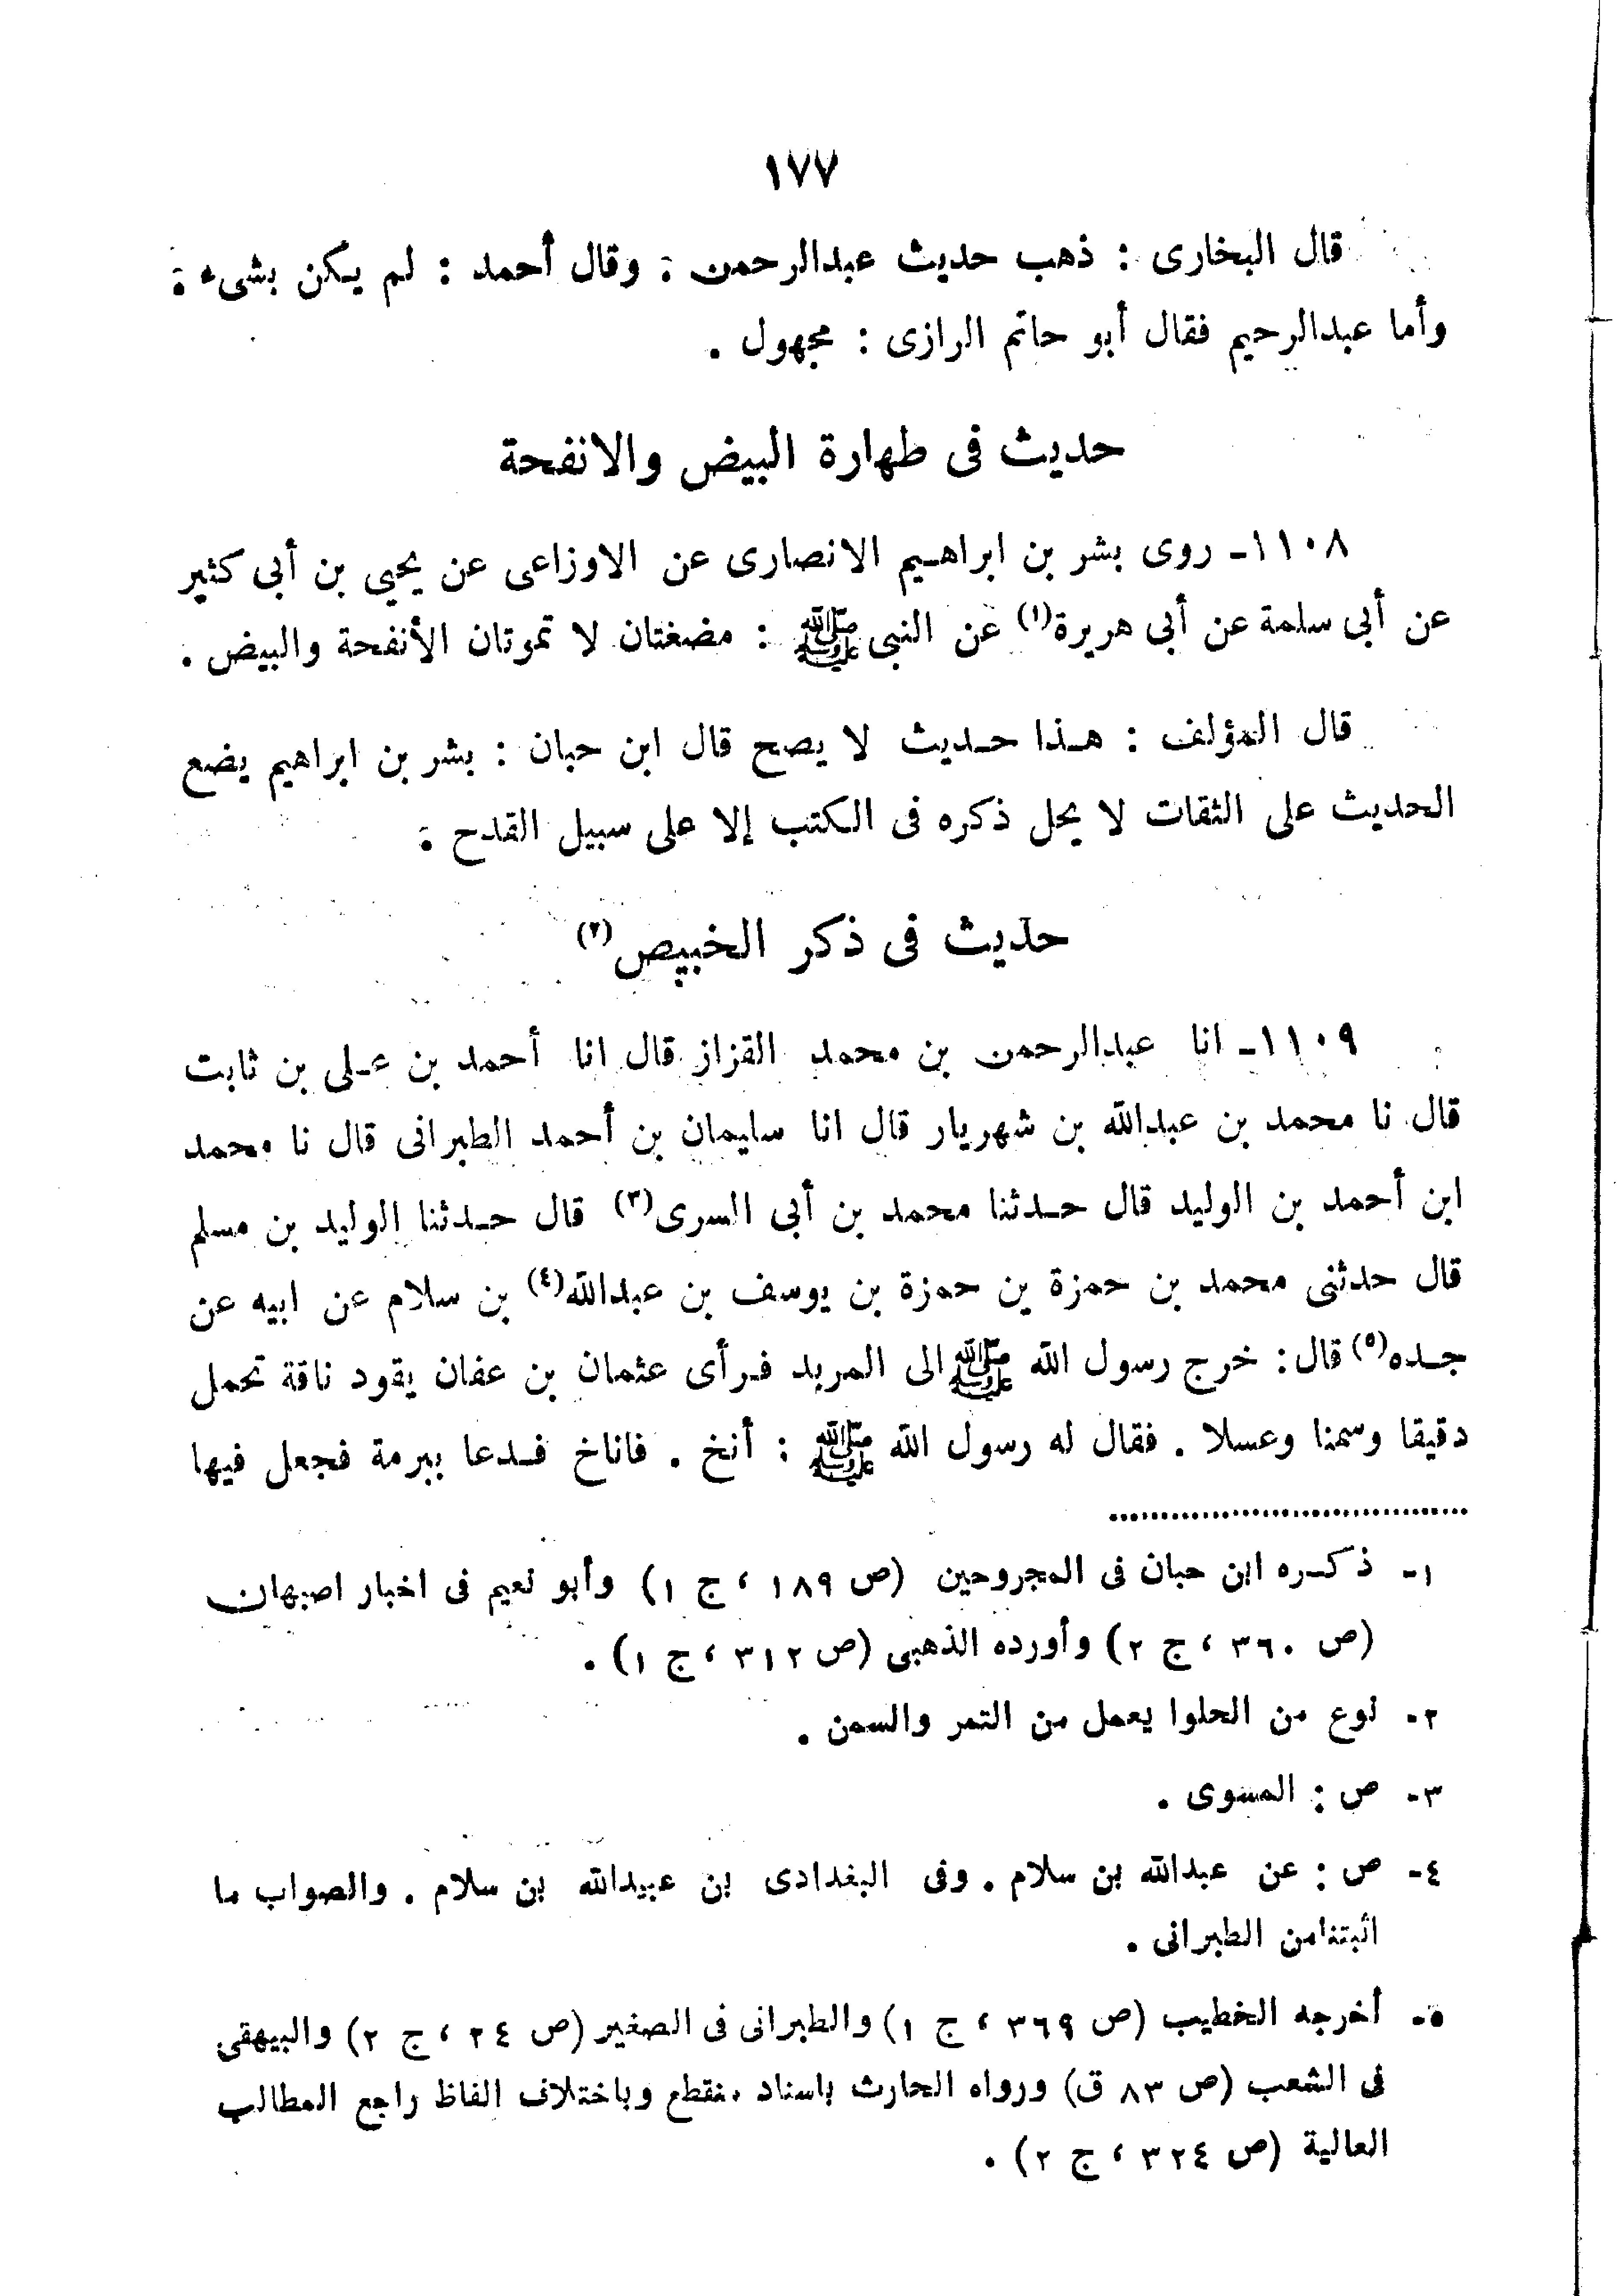 ١٧٧
قال البخارى : ذهب حديث عبدالرحمن . وقال أحمد : لم يكن بشىء .
وأما عبدالرحيم فقال أبو حاتم الرازى : مجهول .
حديث فى طهارة البيض والانفحة
١١٠٨- روى بشر بن ابراهيم الانصارى عن الاوزاعى عن يحيى بن أبى كثير
عن أبى سلمة عن أبى هريرة(١) عن النبى ﷺ : مضغتان لا تموتان الأنفحة والبيض .
قال المؤلف : هذا حديث لا يصح قال ابن حبان : بشر بن ابراهيم يضع
الحديث على الثقات لا يحل ذكره فى الكتب إلا على سبيل القدح .
حديث فى ذكر الخبيص(٢)
١١٠٩- انا عبدالرحمن بن محمد القزاز قال انا أحمد بن على بن ثابت
قال نا محمد بن عبدالله بن شهريار قال انا سليمان بن أحمد الطبرانى قال نا محمد
ابن أحمد بن الوليد قال حدثنا محمد بن أبى السرى(٣) قال حدثنا الوليد بن مسلم
قال حدثنى محمد بن حمزة بن حمزة بن يوسف بن عبدالله(٤) بن سلام عن ابيه عن
جده(٥) قال: خرج رسول الله ﷺ الى المربد فرأى عثمان بن عفان يقود ناقة تحمل
دقيقا وسمنا وعسلا . فقال له رسول الله ﷺ : أنخ . فاناخ فدعا ببرمة فجعل فيها
١- ذكره ابن حبان فى المجروحين (ص ١٨٩ ، ج ١) وأبو نعيم فى اخبار اصبهان
(ص ٣٦٠ ، ج ٢) وأورده الذهبى (ص ٣١٢ ، ج ١) .
٢- نوع من الحلوا يعمل من التمر والسمن .
٣- ص : المسوى .
٤- ص : عن عبدالله بن سلام . وفى البغدادى بن عبيدالله بن سلام . والصواب ما
اثبتنامن الطبرانى .
٥- أخرجه الخطيب (ص ٣٦٩ ، ج ١) والطبرانى فى الصغير (ص ٢٤ ، ج ٢) والبيهقى
فى الشعب (ص ٨٣ ق) ورواه الحارث باسناد منقطع وباختلاف الفاظ راجع المطالب
العالية (ص ٣٢٤ ، ج ٢) .